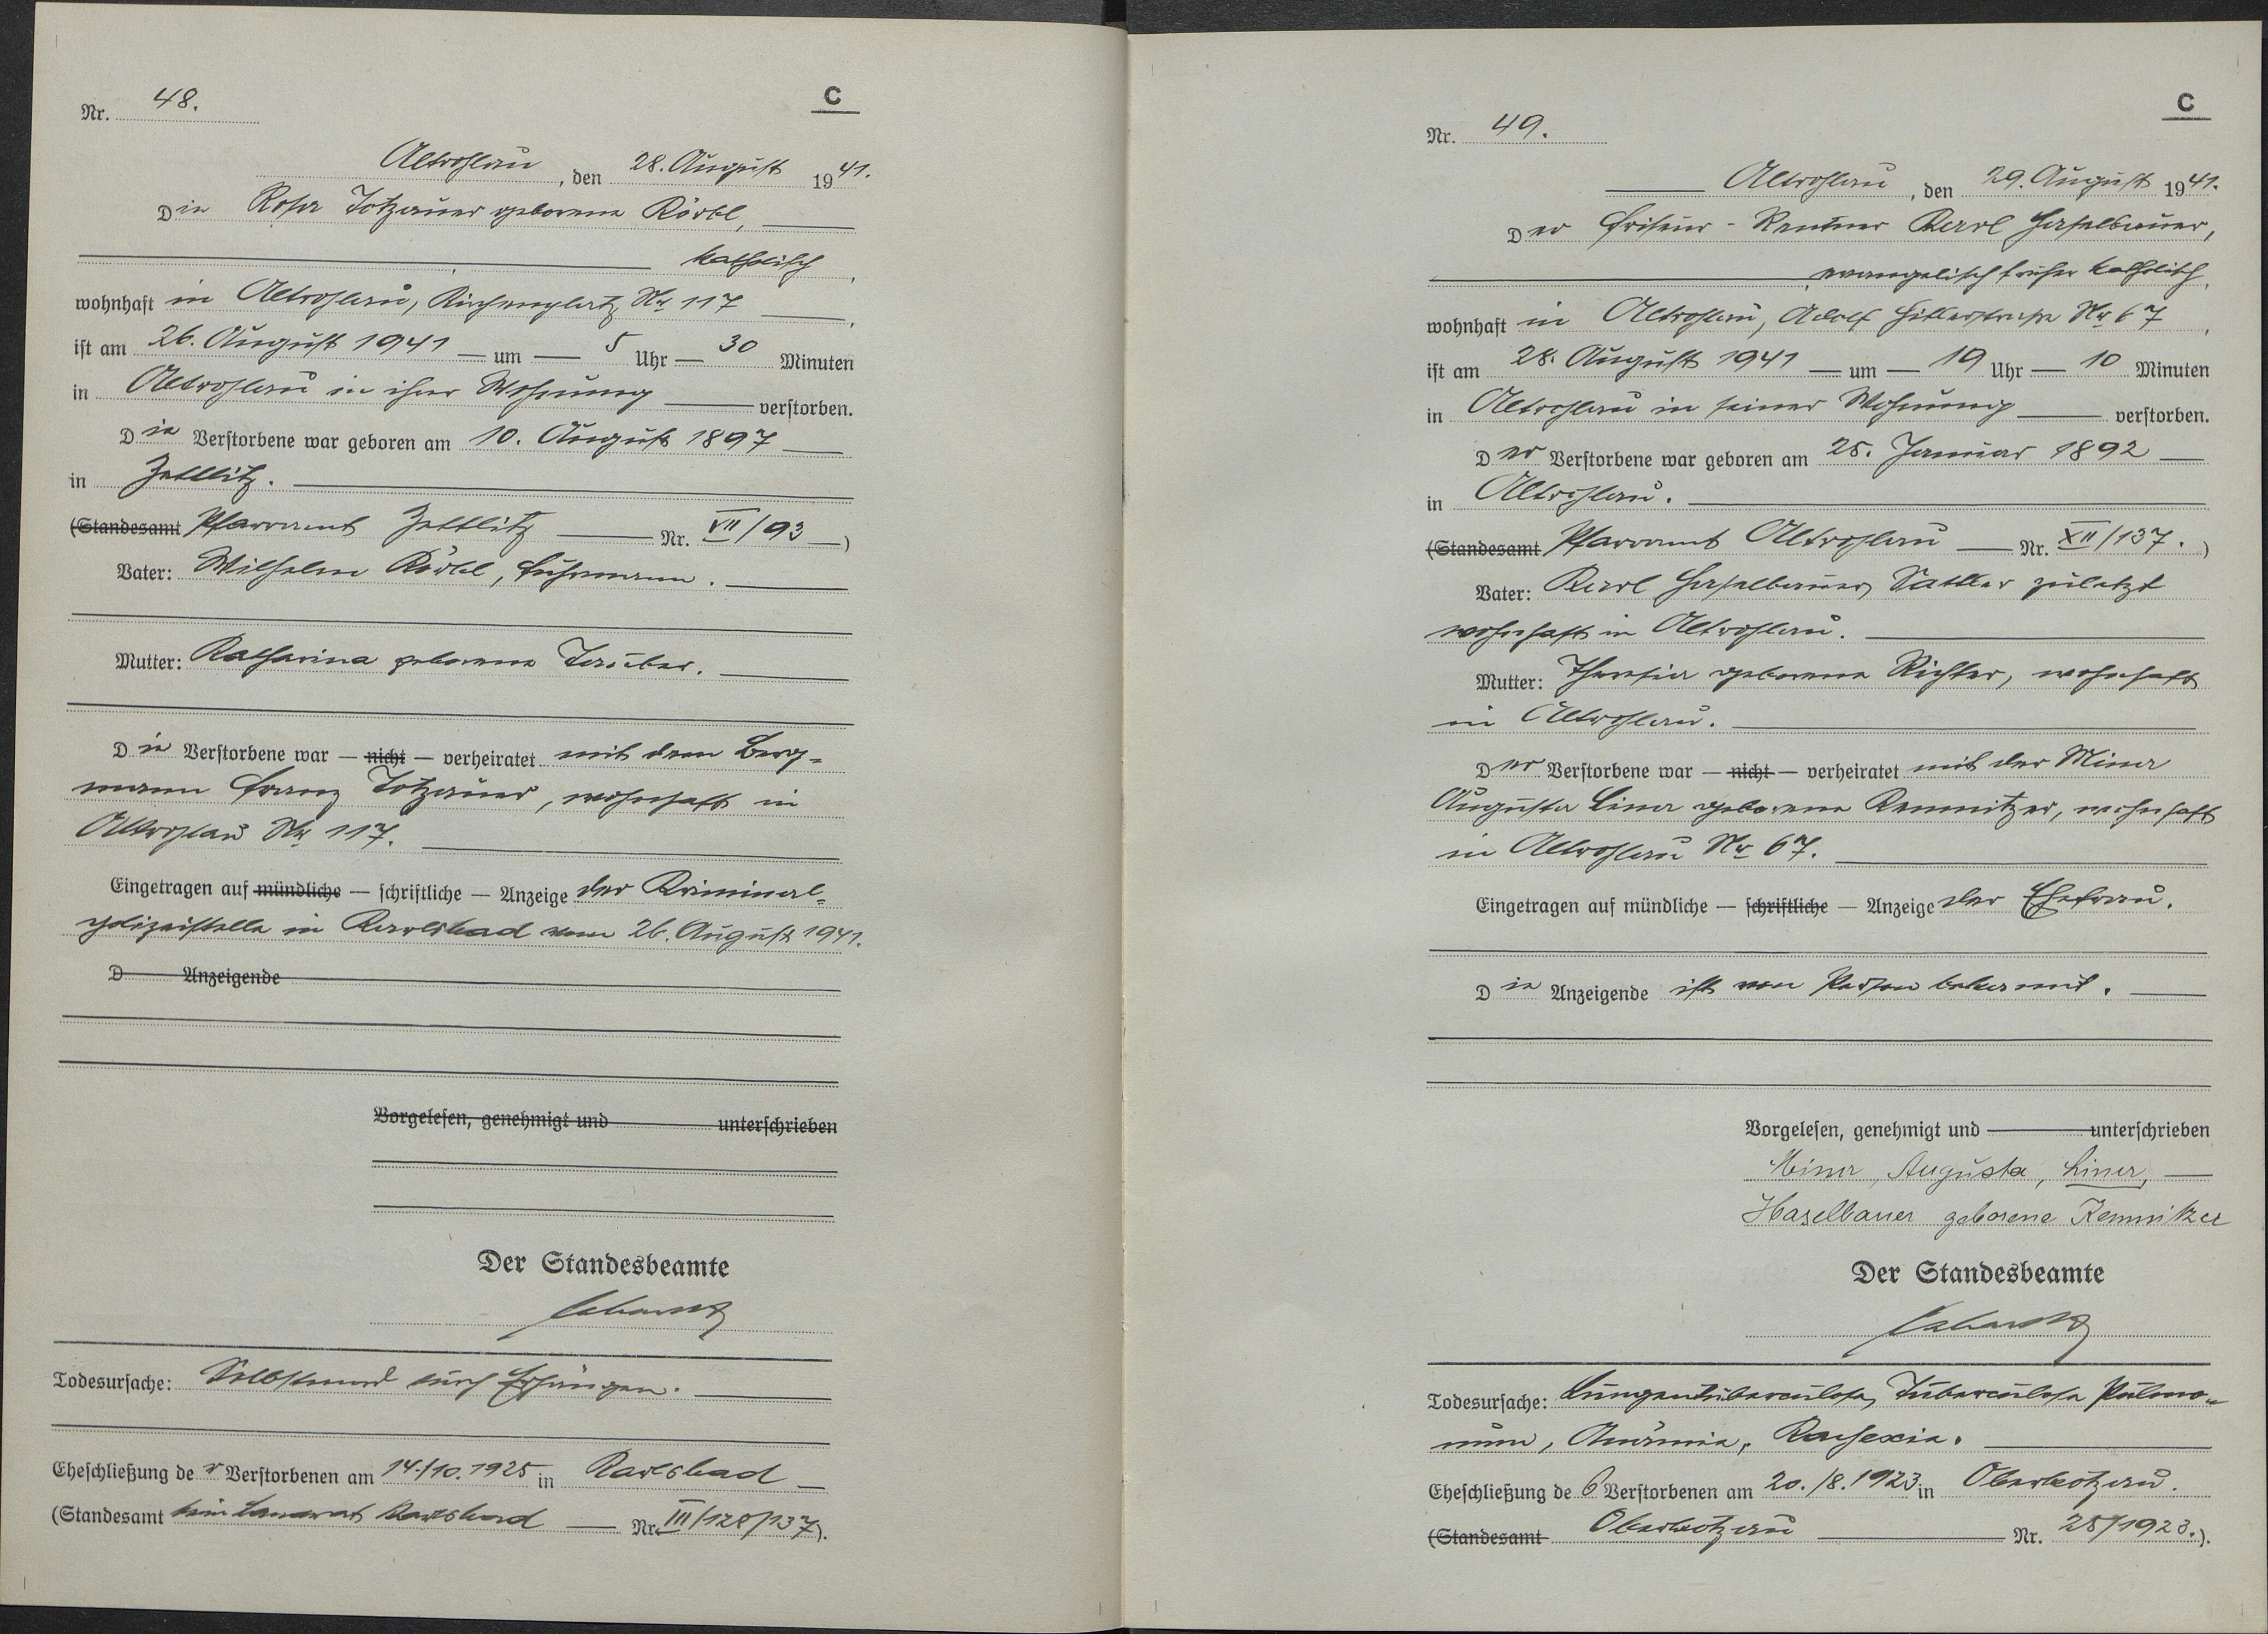 C
Nr. 48.
Altrohlau, den 28. August 1941.
Die Rosa Totzauer geborene Körbl,
katholisch,
wohnhaft in Altrohlau, Kirchenplatz Nr 117,
ist am 26. August 1941 — um — 5 Uhr — 30 Minuten
in Altrohlau in ihrer Wohnung verstorben.
Die Verstorbene war geboren am 10. August 1897
in Zettlitz.
(Standesamt Pfarramt Zettlitz Nr. VII/93)
Vater: Wilhelm Körbl, Fuhrmann.
Mutter: Katharina geborene Täuber.
Die Verstorbene war — nicht — verheiratet mit dem Berg-
mann Franz Totzauer, wohnhaft in
Altrohlau Nr 117.
Eingetragen auf mündliche — schriftliche — Anzeige der Kriminal-
polizeistelle in Karlsbad vom 26. August 1941.
D Anzeigende
Vorgelesen, genehmigt und unterschrieben
Der Standesbeamte
Todesursache: Selbstmord durch Erhängen.
Eheschließung der Verstorbenen am 14./10.1925 in Karlsbad
(Standesamt Karlsbad Nr. III/128/137).
C
Nr. 49.
Altrohlau, den 29. August 1941.
Der Friseur - Rentner Karl Haselbauer,
evangelisch früher katholisch,
wohnhaft in Altrohlau, Adolf Hitlerstraße Nr 67,
ist am 28. August 1941 — um — 19 Uhr — 10 Minuten
in Altrohlau in seiner Wohnung verstorben.
Der Verstorbene war geboren am 25. Januar 1892
in Altrohlau.
(Standesamt Pfarramt Altrohlau Nr. XII/137.)
Vater: Karl Haselbauer, Sattler zuletzt
wohnhaft in Altrohlau.
Mutter: Theresia geborene Richter, wohnhaft
in Altrohlau.
Der Verstorbene war — nicht — verheiratet mit der Minna
Augusta Lina geborene Kemnitzer, wohnhaft
in Altrohlau Nr 67.
Eingetragen auf mündliche — schriftliche — Anzeige der Ehefrau.
Die Anzeigende ist von Person bekannt.
Vorgelesen, genehmigt und unterschrieben
Augusta, Lina,
Haselbauer geborene Kemnitzer
Der Standesbeamte
Todesursache: Lungentuberculose, Tuberculosa Pulmo-
num, Anämia, Kachexia.
Eheschließung des Verstorbenen am 20./8.1923 in Oberkotzau.
(Standesamt Oberkotzau Nr. 28/1923.).